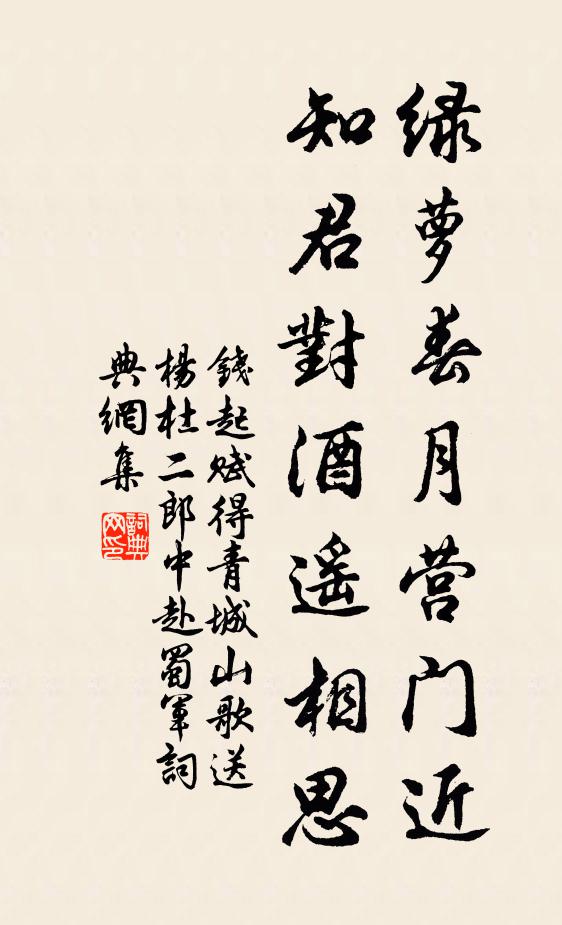 绿萝春月营门近
知君對酒遥相思
錢起赋得青城山歌送
楊杜二郎中赴蜀軍詞
典網集
詞典网印